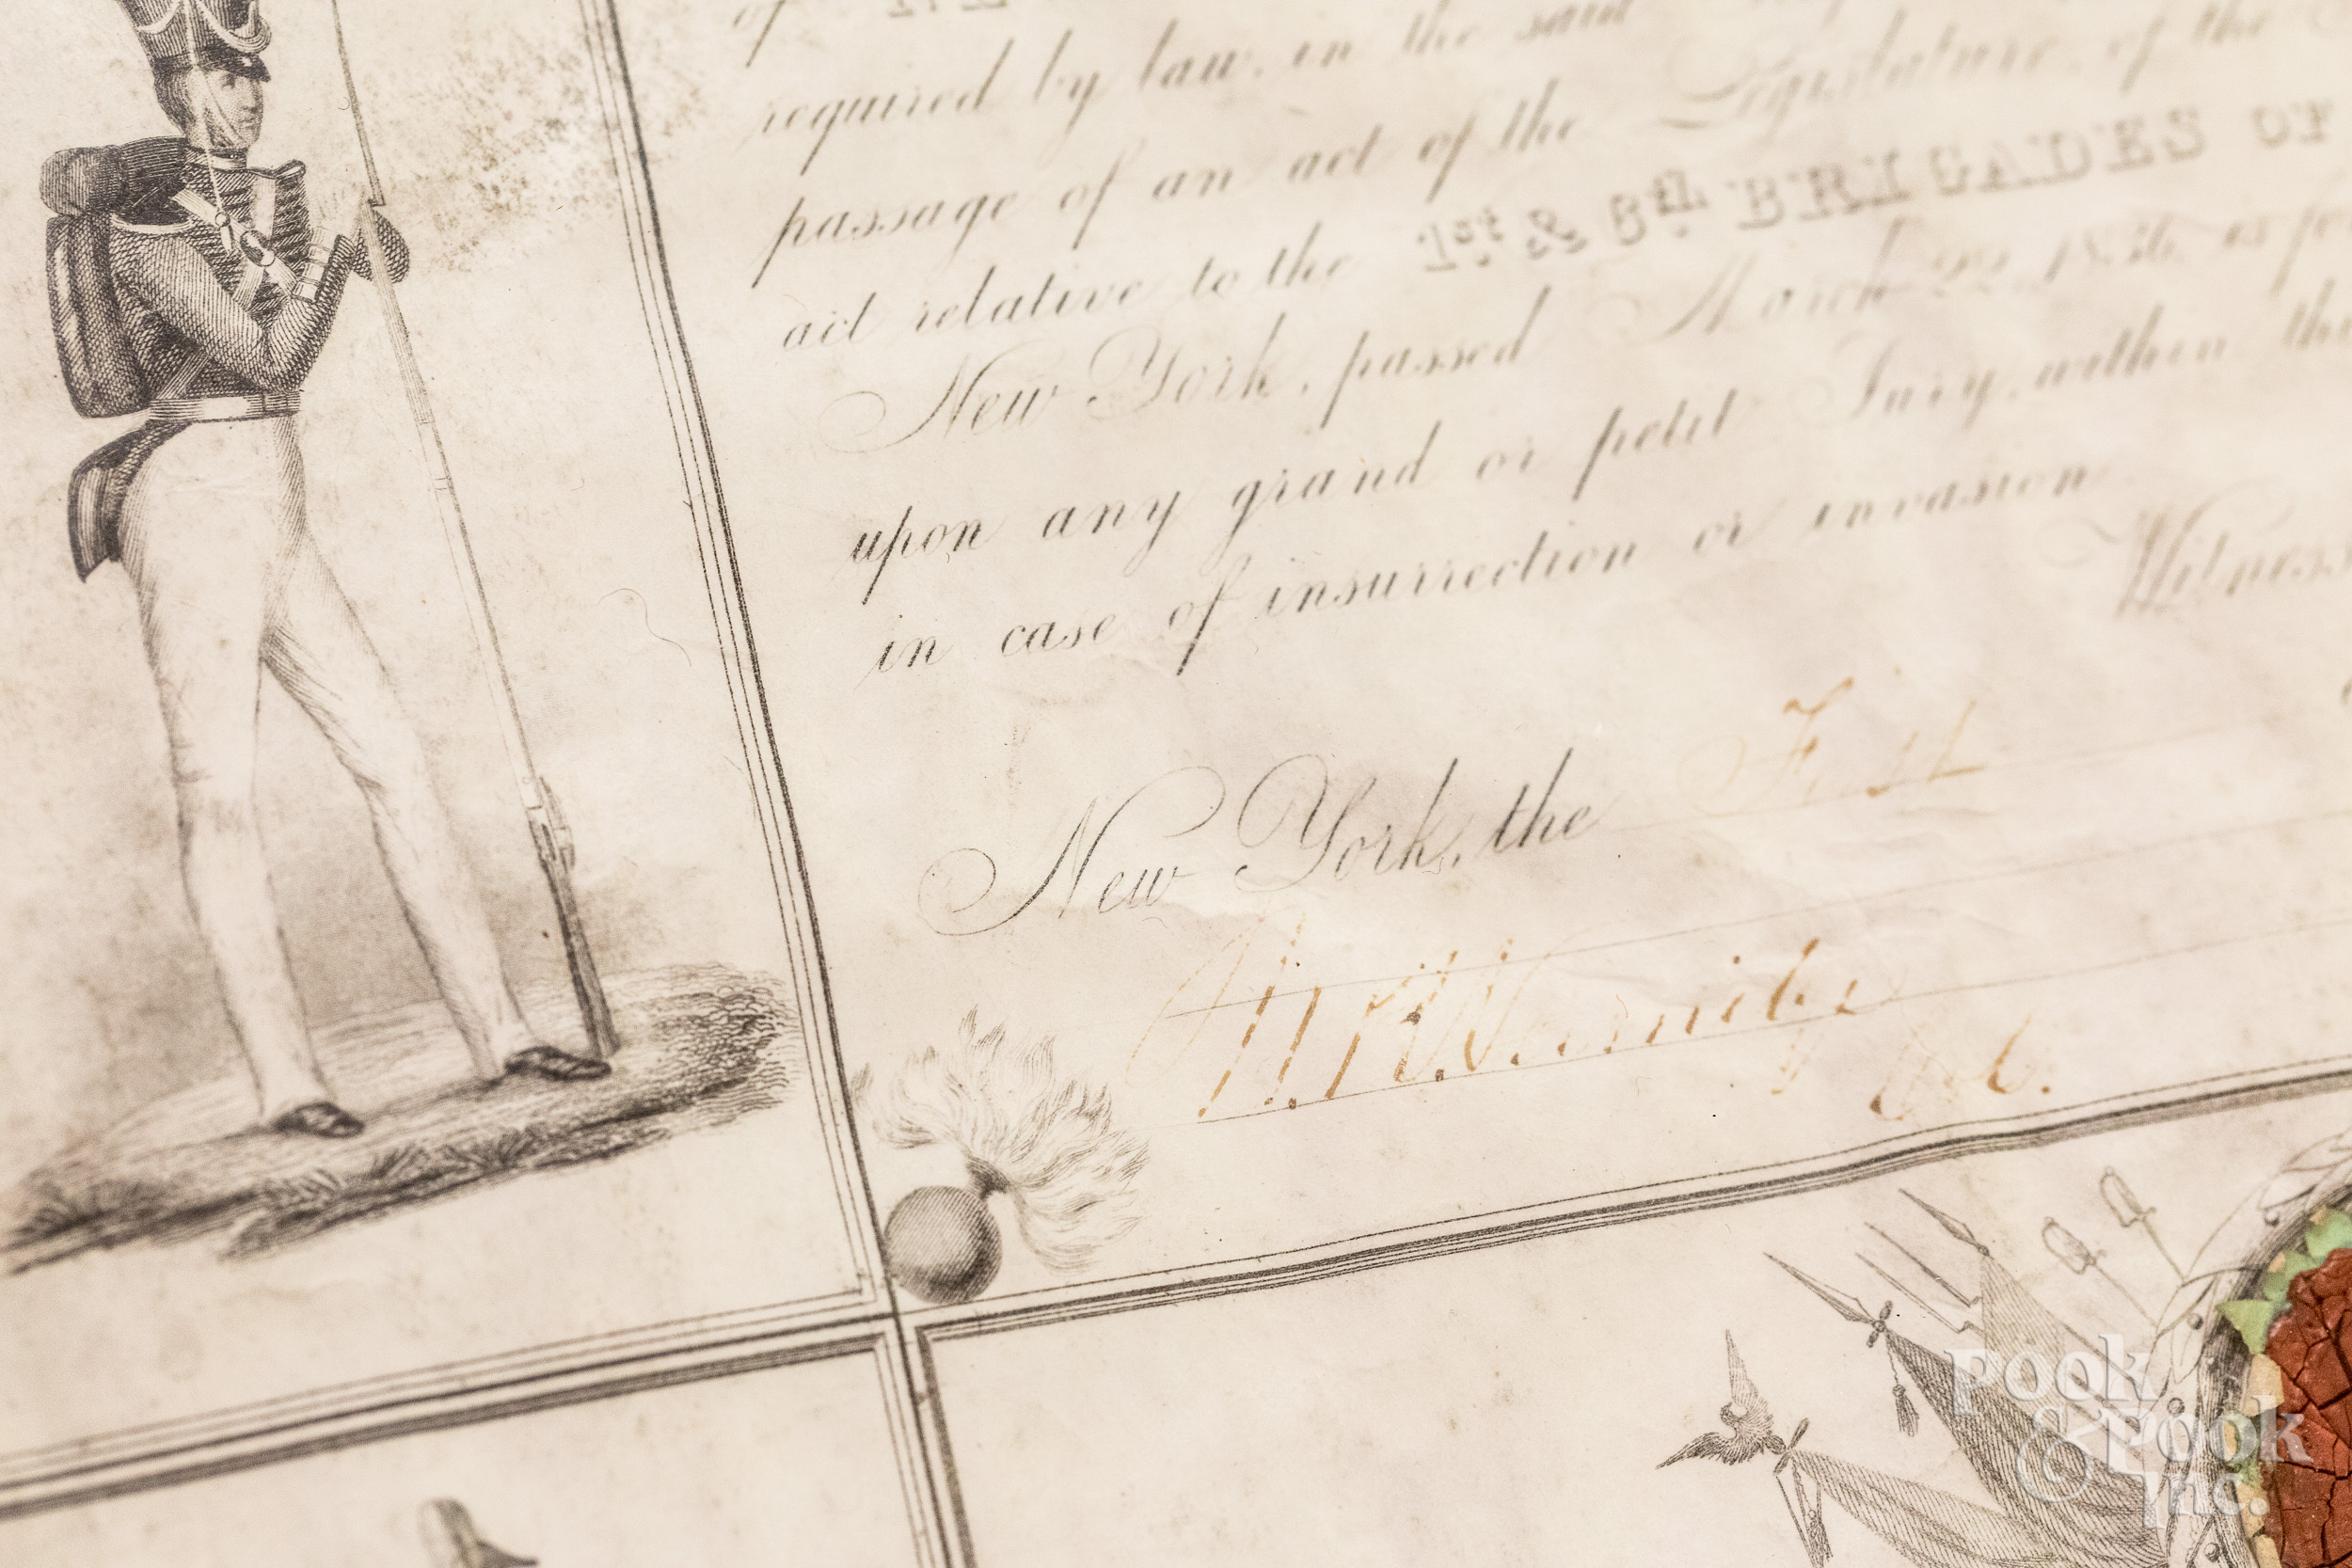 of
required by law, in the said
passage of an act of the Legislature, of the
act relative to the 1st & 8th BRIGADES OF
New York, passed March 22, 1836
upon any grand or petit Jury, within the
in case of insurrection or invasion
Witness
New York, the First
Pook
& Pook
Inc.